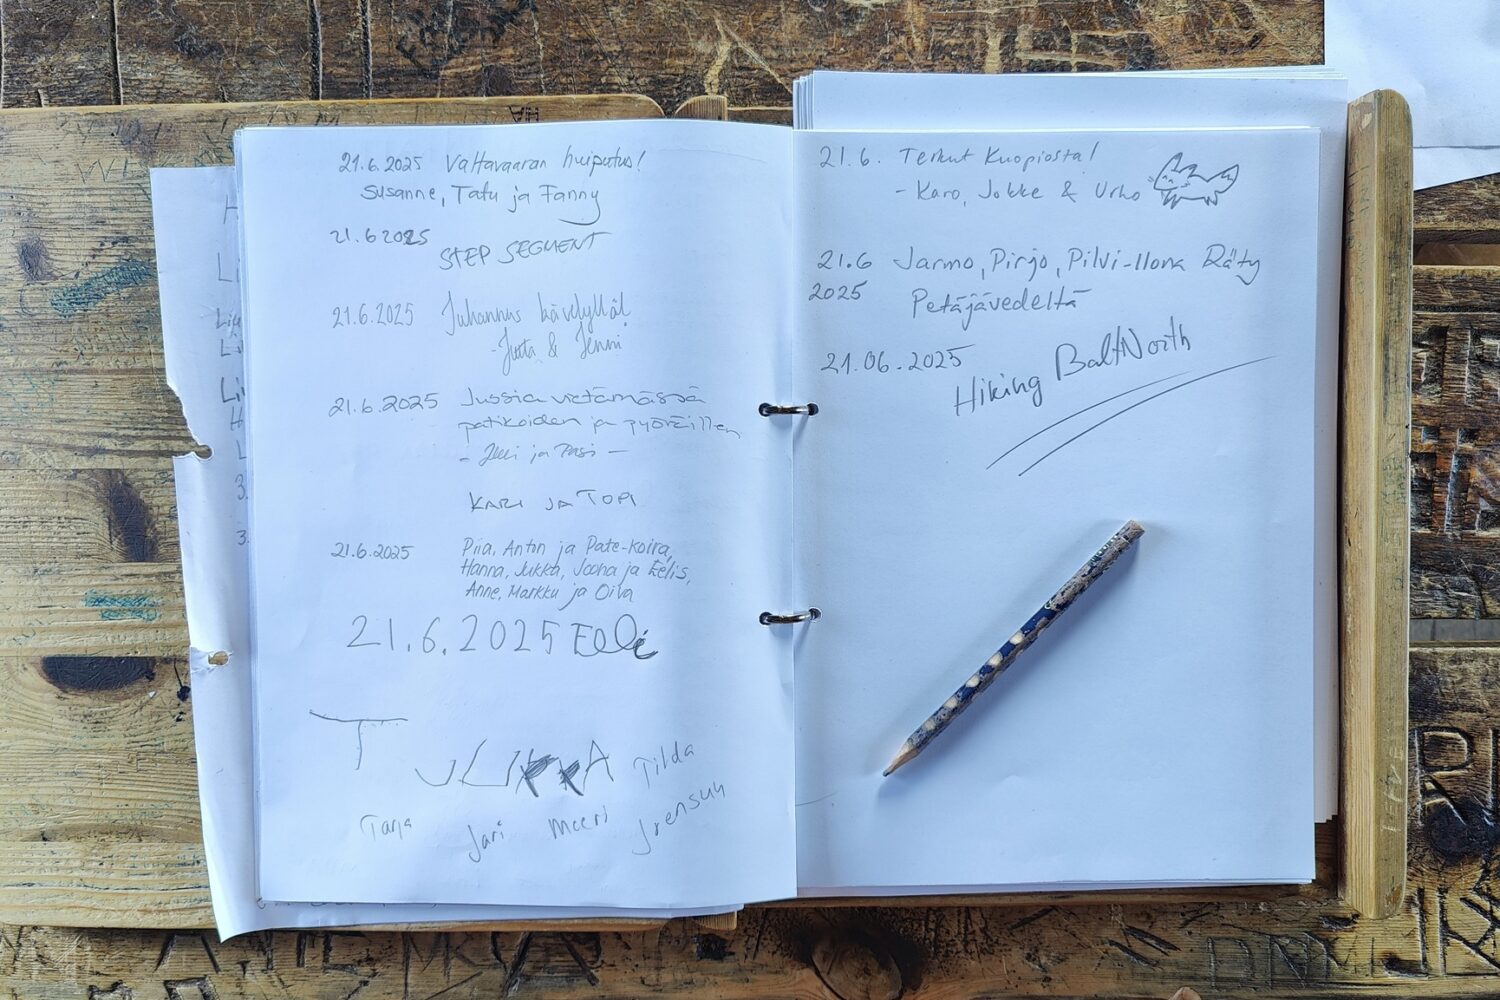 21.6.2025 Valtavaaran huiputus!
Susanne, Tatu ja Fanny
21.6 2025
STEP SEGMENT
21.6.2025 Juhannus kävelyllä!
- Jutta & Jenni
21.6.2025 Jussia viettämässä
patikoiden ja pyöräillen
- ja Pasi -
KARI JA TOPI
21.6.2025 Piia, Anton ja Pate-koira,
Hanna, Jukka, Jooha ja Eelis,
Anne, Markku ja Oiva
21.6.2025 Elli
T
Tilda
Tarja Jari Meeri Joensuu
21.6. Terkut Kuopiosta!
- Karo, Jokke & Urho
21.6 Jarmo, Pirjo, Pilvi-Ilona Räty
2025 Petäjävedeltä
21.06.2025 Hiking BaltNorth